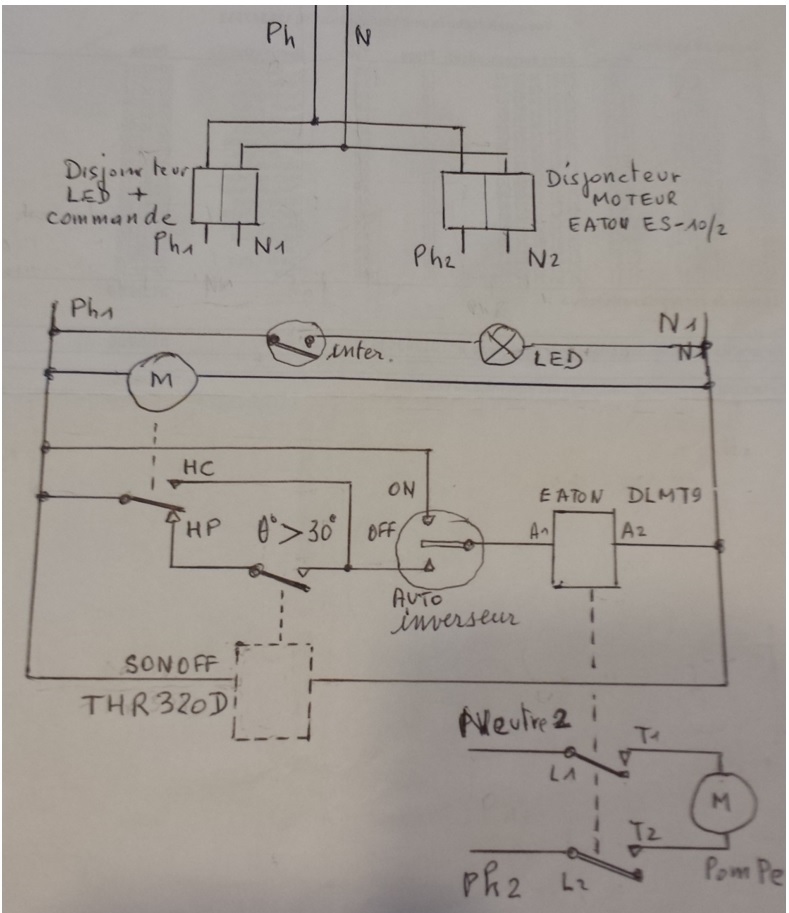 Ph N
Disjoncteur
LED +
commande
Ph1 N1
Disjoncteur
MOTEUR
EATON ES-10/2
Ph2 N2
Ph1
N1
N1
inter.
LED
M
HC
ON
EATON DLMT9
HP
θ° > 30°
OFF
A1 A2
AUTO
inverseur
SONOFF
THR320D
Neutre 2
T1
L1
M
T2
Ph2 L2
Pompe